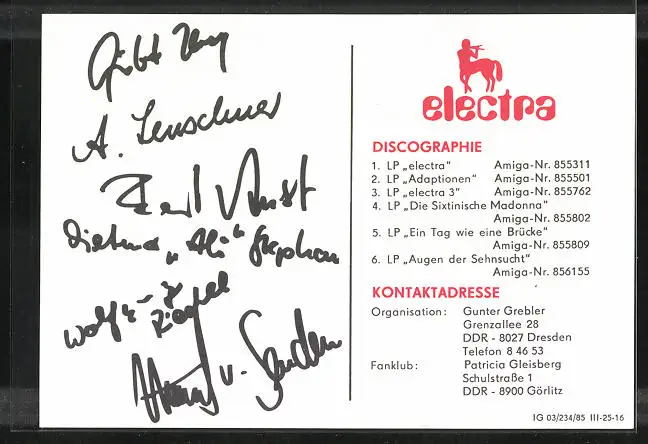 A. Leuschner
electra
DISCOGRAPHIE
1. LP „electra“ Amiga-Nr. 855311
2. LP „Adaptionen“ Amiga-Nr. 855501
3. LP „electra 3“ Amiga-Nr. 855762
4. LP „Die Sixtinische Madonna“
Amiga-Nr. 855802
5. LP „Ein Tag wie eine Brücke“
Amiga-Nr. 855809
6. LP „Augen der Sehnsucht“
Amiga-Nr. 856155
KONTAKTADRESSE
Organisation: Gunter Grebler
Grenzallee 28
DDR - 8027 Dresden
Telefon 8 46 53
Fanklub: Patricia Gleisberg
Schulstraße 1
DDR - 8900 Görlitz
IG 03/234/85 III-25-16